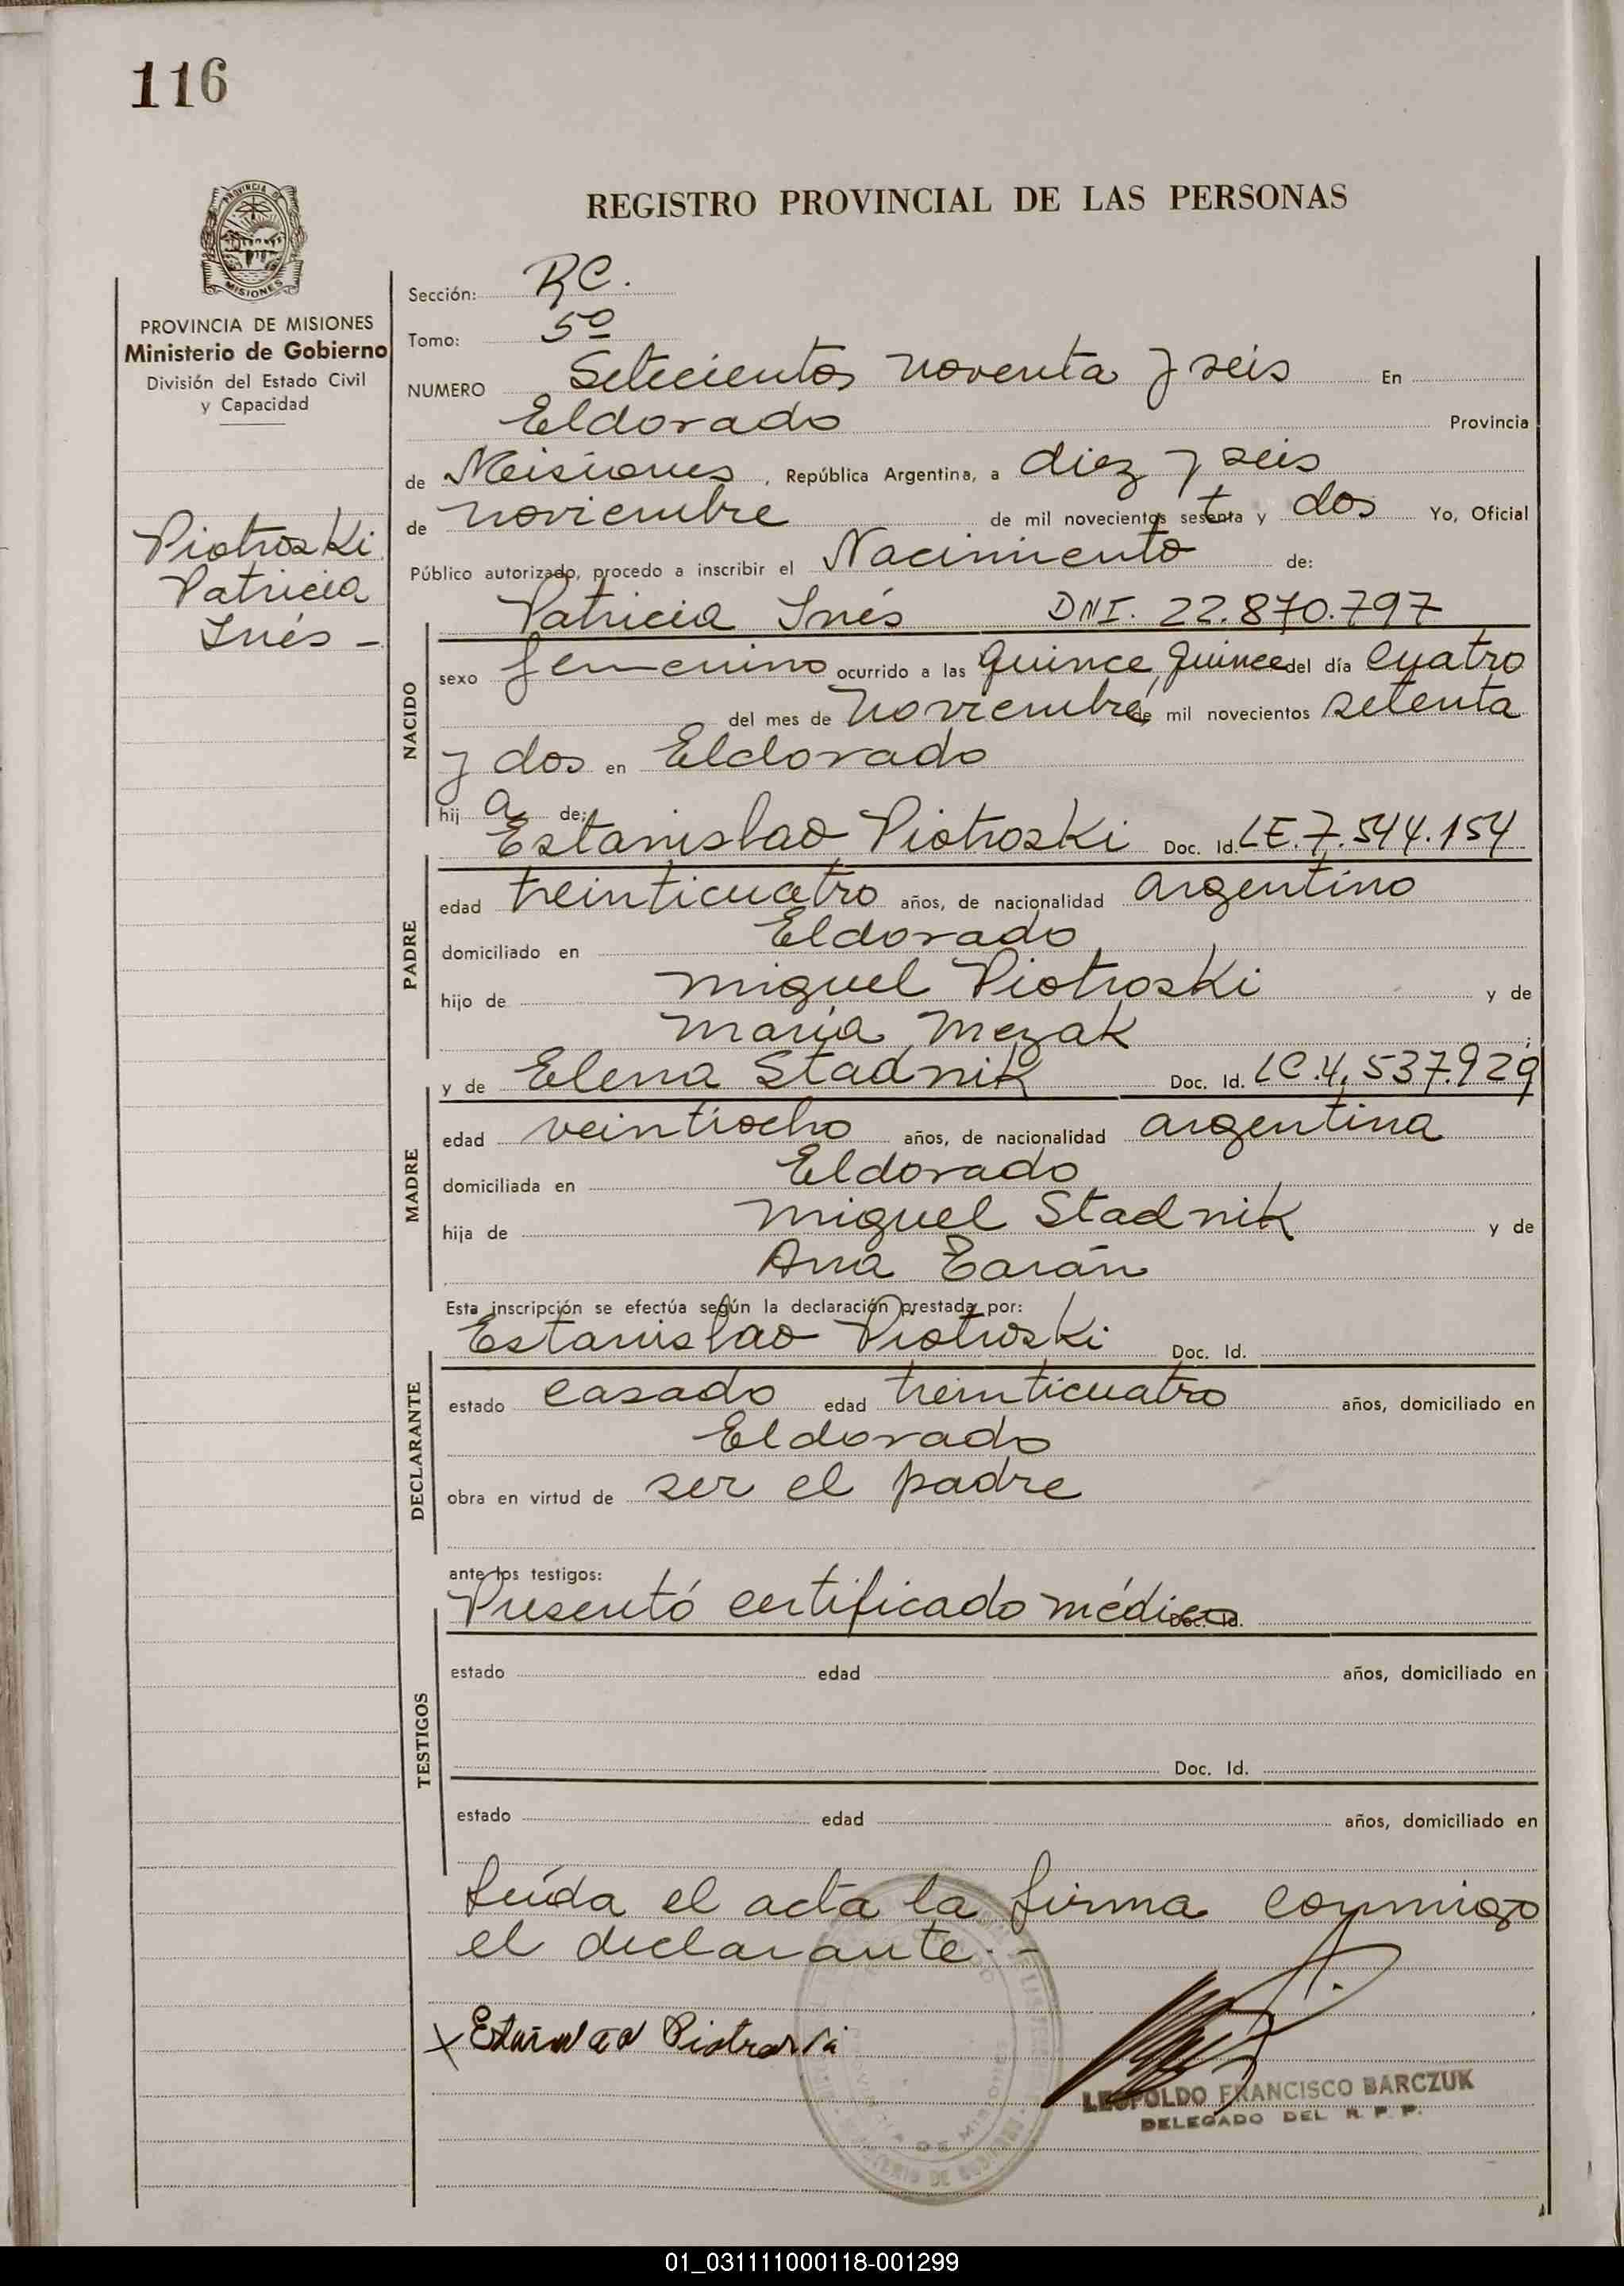 116
PROVINCIA DE
MISIONES
REGISTRO PROVINCIAL DE LAS PERSONAS
PROVINCIA DE MISIONES
Ministerio de Gobierno
División del Estado Civil
y Capacidad
Piotroski
Patricia
Inés -
Sección: RC.
Tomo: 5º
NUMERO Setecientos noventa y seis En
Eldorado Provincia
de Misiones, República Argentina, a diez y seis
de noviembre de mil novecientos setenta y dos Yo, Oficial
Público autorizado, procedo a inscribir el Nacimiento de:
Patricia Inés DNI. 22.870.797
NACIDO
sexo femenino ocurrido a las quince, quince del día cuatro
del mes de noviembre de mil novecientos setenta
y dos en Eldorado
hij a de:
Estanislao Piotroski Doc. Id. LE.7.544.154
PADRE
edad treinticuatro años, de nacionalidad argentino
domiciliado en Eldorado
hijo de Miguel Piotroski y de
María Mezak ;
y de Elena Stadnik Doc. Id. LC.4.537.929
MADRE
edad veintiocho años, de nacionalidad argentina
domiciliada en Eldorado
hija de Miguel Stadnik y de
Ana
Esta inscripción se efectúa según la declaración prestada por:
Estanislao Piotroski Doc. Id.
DECLARANTE
estado casado edad treinticuatro años, domiciliado en
Eldorado
obra en virtud de ser el padre
ante los testigos:
Presentó certificado médico Doc. Id.
TESTIGOS
estado edad años, domiciliado en
Doc. Id.
estado edad años, domiciliado en
Leída el acta la firma conmigo
el declarante. -
X Piotroski
LEOPOLDO FRANCISCO BARCZUK
DELEGADO DEL R. P. P.
01_031111000118-001299